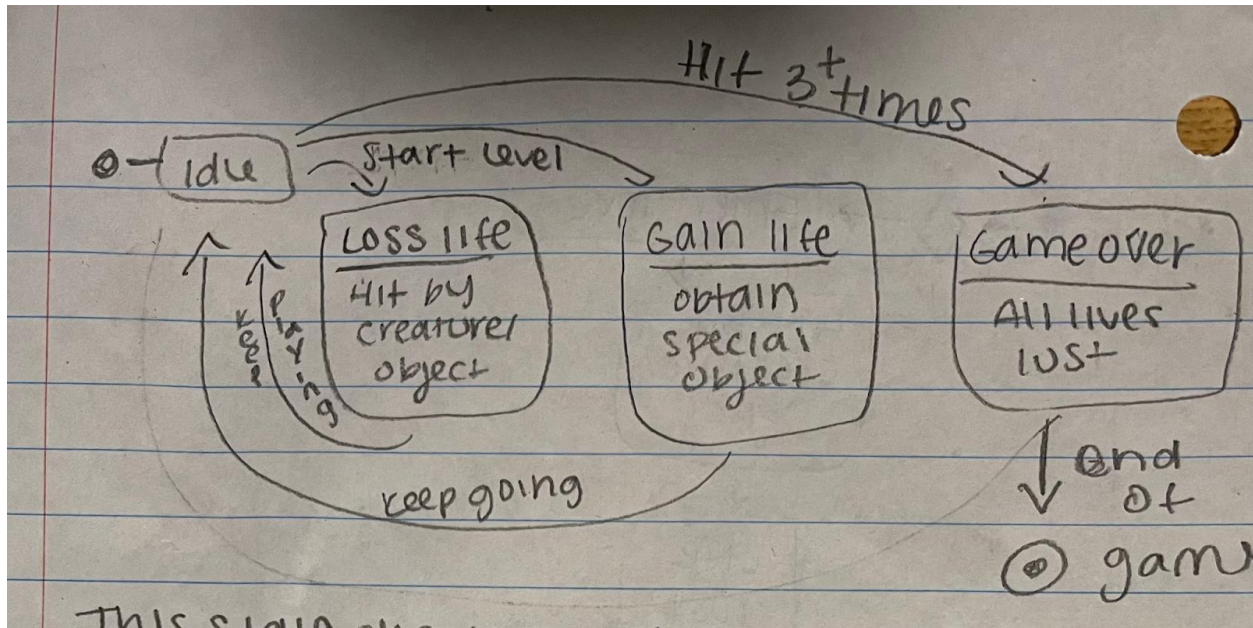 Hit 3+ times
Idle
Start Level
Loss life
Hit by
creature/
object
Gain life
obtain
special
object
Game over
All lives
lost
keep
playing
keep going
end
of
gam
This